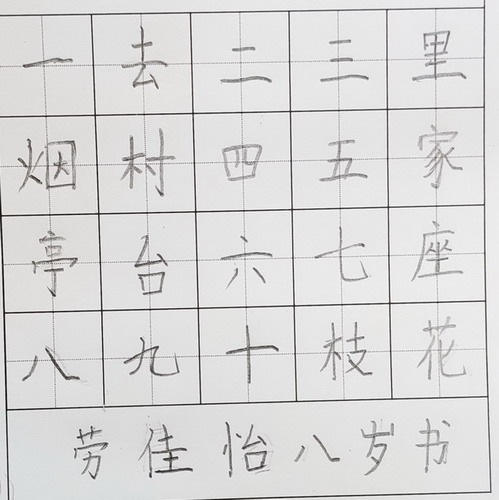 一去二三里
烟村四五家
亭台六七座
八九十枝花
劳佳怡八岁书